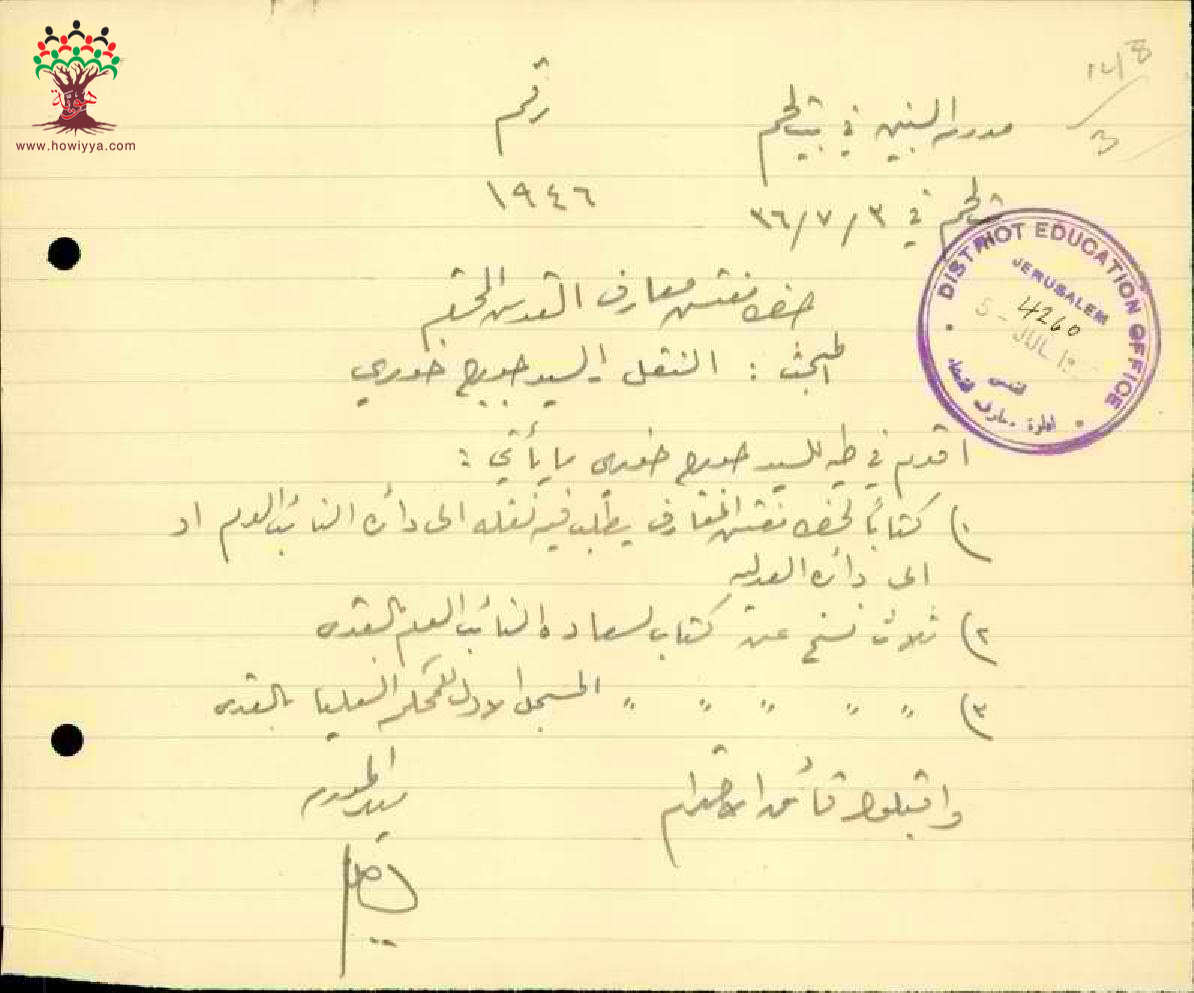 هوية
www.howiyya.com
١٤/٨
٣
مدرسة البنين في بيت لحم
رقم
بيت لحم في ٣ / ٧ / ٣٦
١٩٤٦
DISTRICT EDUCATION OFFICE
JERUSALEM
4260
5 - JUL 19
القدس
ادارة معارف القضاء
حضرة مفتش معارف القدس المحترم
المبحث : النقل - السيد جورج خوري
اقدم في طيه للسيد جورج خوري ما يأتي :
١) كتاباً لحضرة مفتش المعارف يطلب فيه نقله الى دائرة النائب العام او
الى دائرة العدلية
٢) ثلاث نسخ عن كتاب لسعادة النائب العام بالقدس
٣) " " " " " المسجل الاول للمحكمة العليا بالقدس
واقبلوا فائق الاحترام
مدير المدرسة